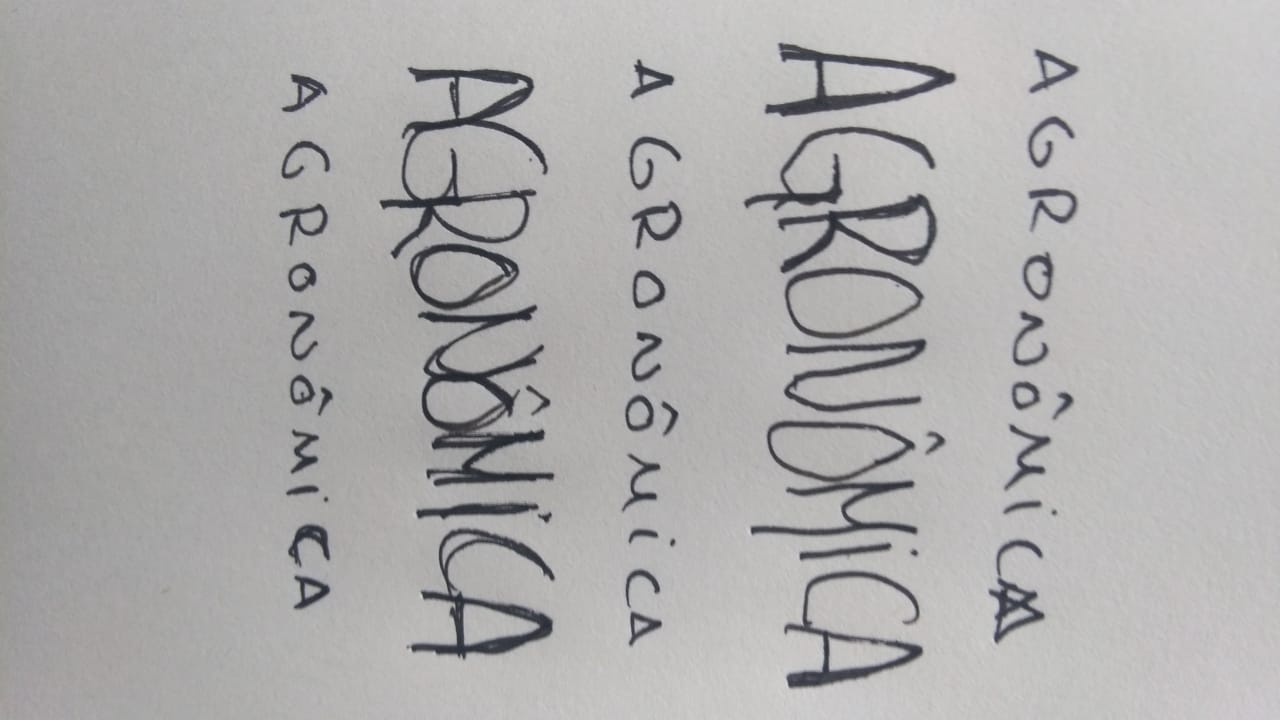 AGRONÔMICA
AGRONÔMICA
AGRONÔMICA
AGRONÔMICA
AGRONÔMICA